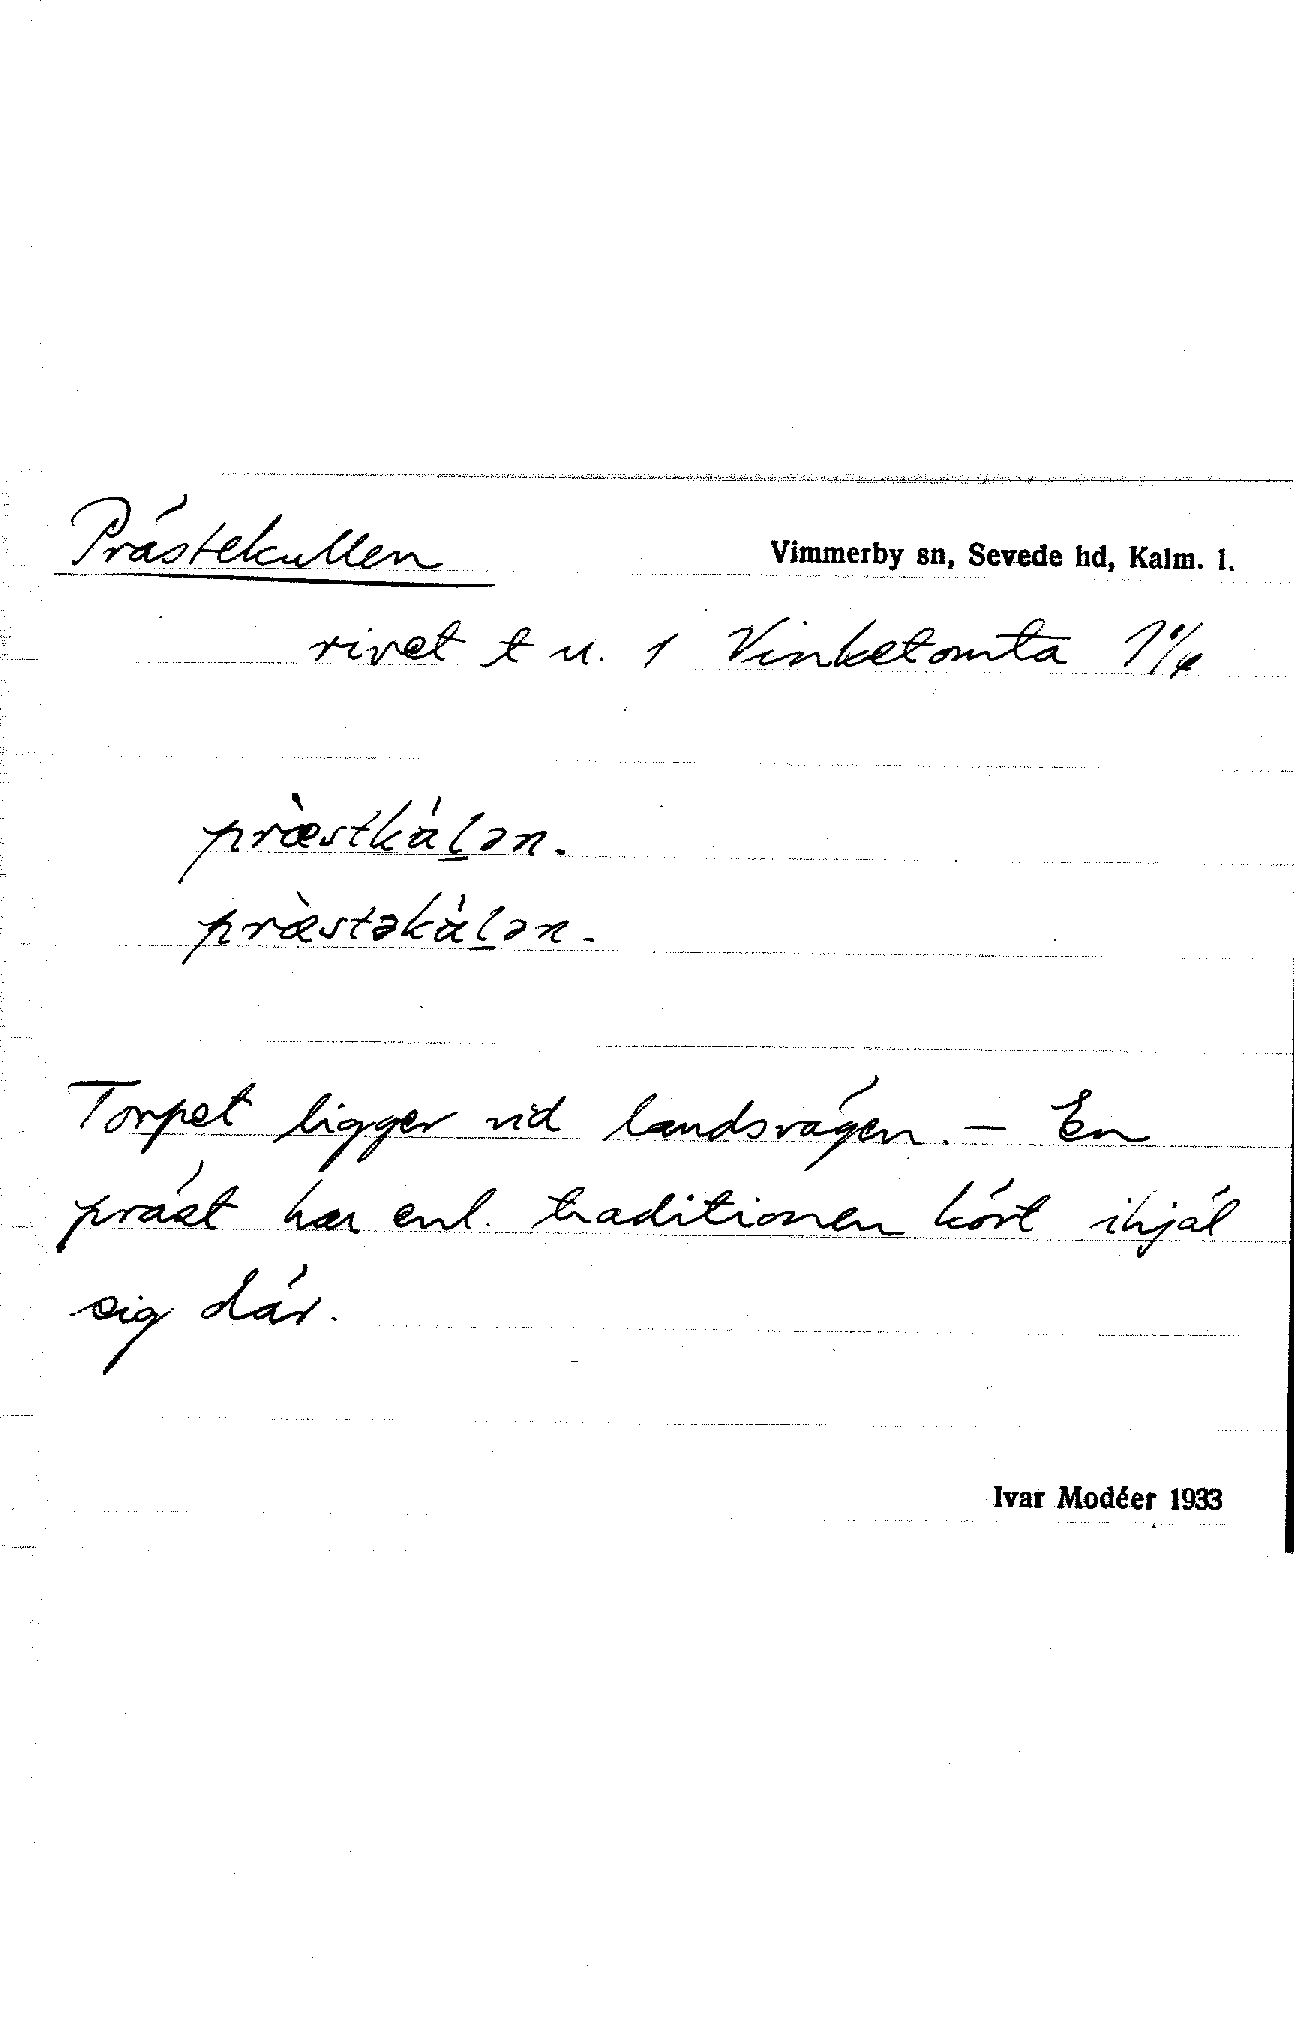 Prästekullen
Vimmerby sn, Sevede hd, Kalm. l.
rivet t u. 1 Vinketomta
præ̀stkù́lən.
præ̀stəkù́lən.
Torpet ligger vid landsvägen. – En
präst har enl. traditionen kört ihjäl
sig där.
Ivar Modéer 1933